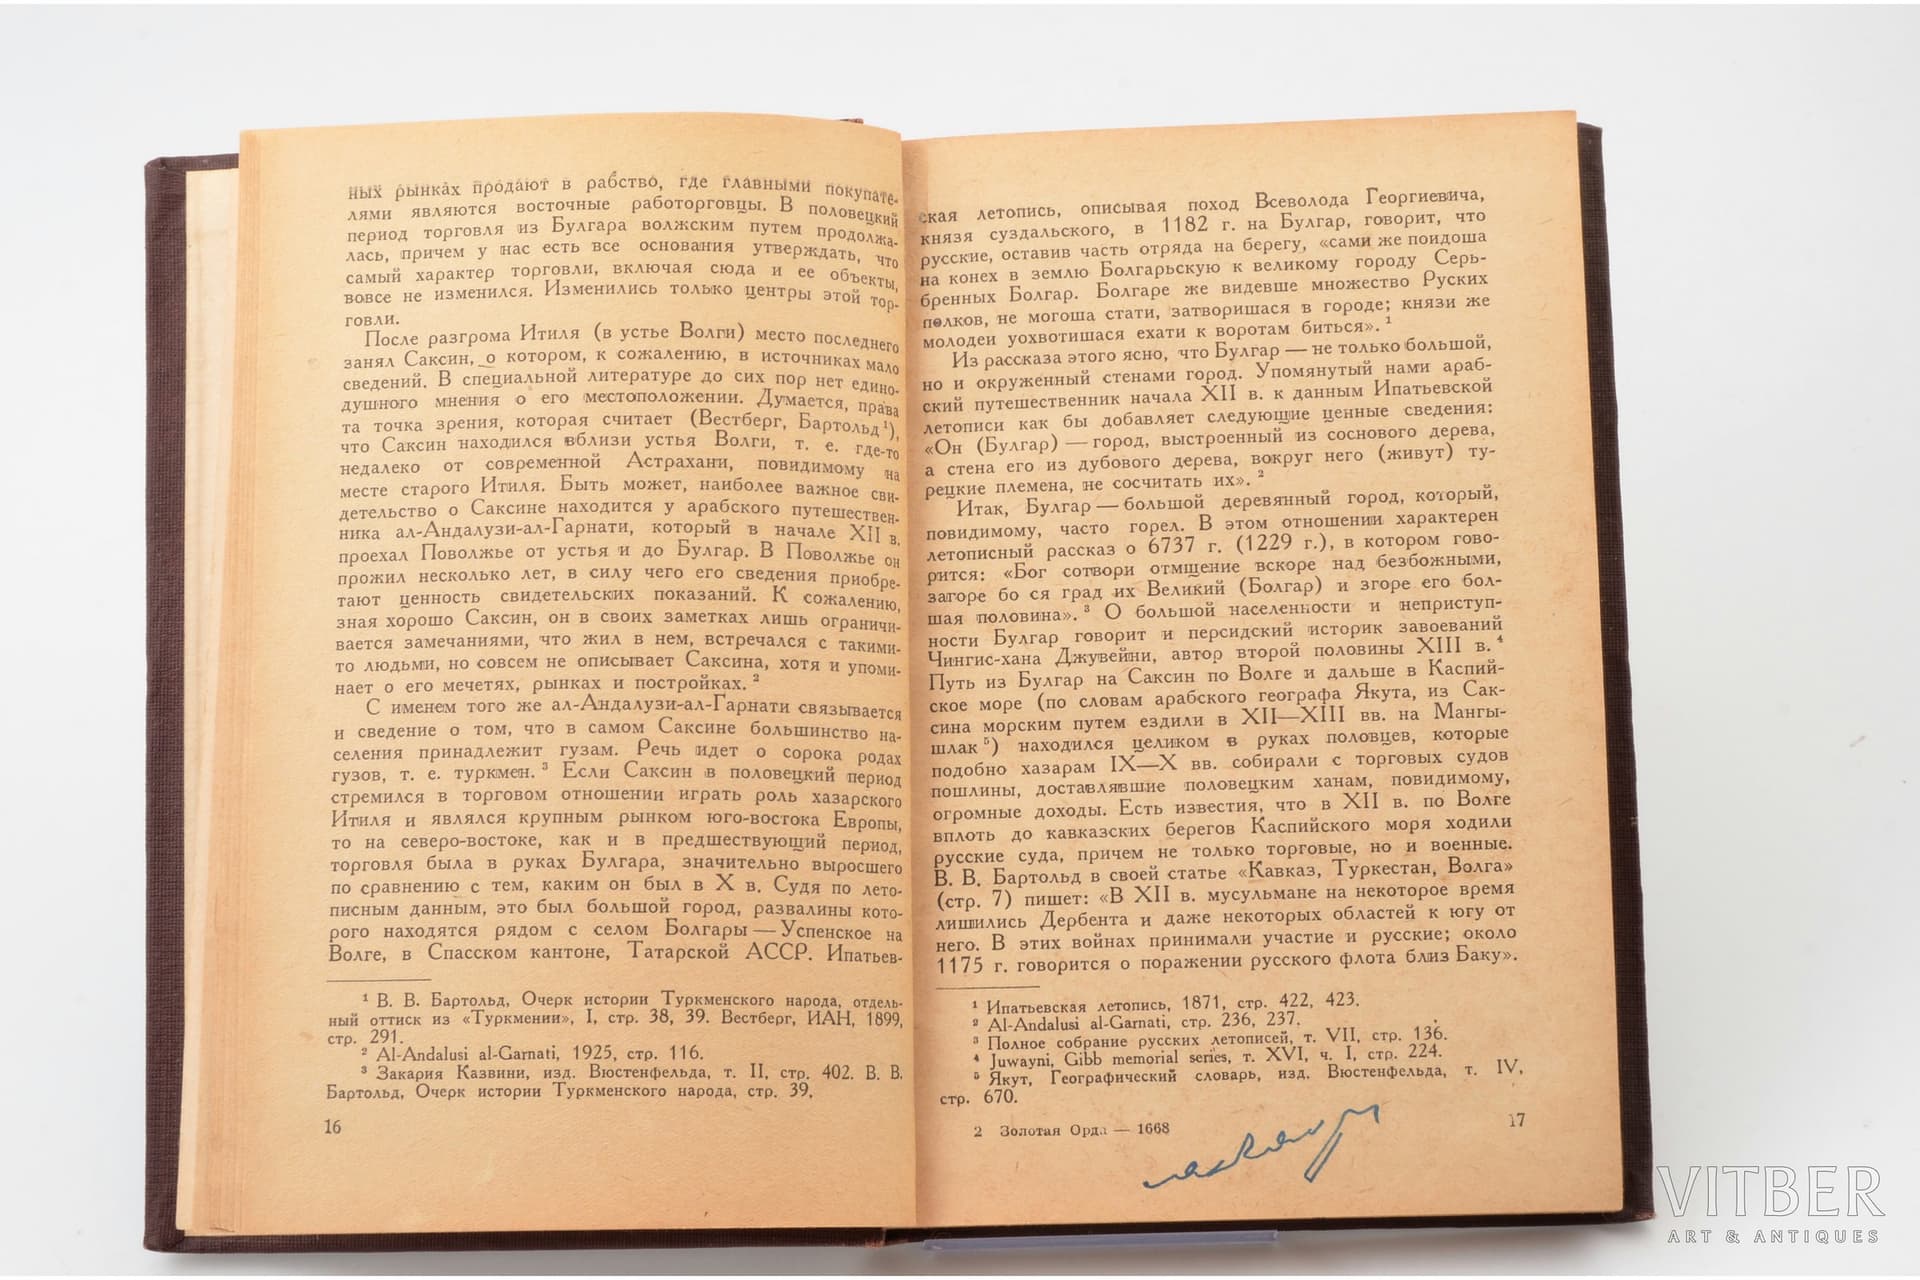 ных рынках продают в рабство, где главными покупате-
лями являются восточные работорговцы. В половецкий
период торговля из Булгара волжским путем продолжа-
лась, причем у нас есть все основания утверждать, что
самый характер торговли, включая сюда и ее объекты,
вовсе не изменился. Изменились только центры этой тор-
говли.
После разгрома Итиля (в устье Волги) место последнего
занял Саксин, о котором, к сожалению, в источниках мало
сведений. В специальной литературе до сих пор нет едино-
душного мнения о его местоположении. Думается, права
та точка зрения, которая считает (Вестберг, Бартольд ¹),
что Саксин находился вблизи устья Волги, т. е. где-то
недалеко от современной Астрахани, повидимому на
месте старого Итиля. Быть может, наиболее важное сви-
детельство о Саксине находится у арабского путешествен-
ника ал-Андалузи-ал-Гарнати, который в начале XII в.
проехал Поволжье от устья и до Булгар. В Поволжье он
прожил несколько лет, в силу чего его сведения приобре-
тают ценность свидетельских показаний. К сожалению,
зная хорошо Саксин, он в своих заметках лишь ограничи-
вается замечаниями, что жил в нем, встречался с такими-
то людьми, но совсем не описывает Саксина, хотя и упоми-
нает о его мечетях, рынках и постройках. ²
С именем того же ал-Андалузи-ал-Гарнати связывается
и сведение о том, что в самом Саксине большинство на-
селения принадлежит гузам. Речь идет о сорока родах
гузов, т. е. туркмен. ³ Если Саксин в половецкий период
стремился в торговом отношении играть роль хазарского
Итиля и являлся крупным рынком юго-востока Европы,
то на северо-востоке, как и в предшествующий период,
торговля была в руках Булгара, значительно выросшего
по сравнению с тем, каким он был в X в. Судя по лето-
писным данным, это был большой город, развалины кото-
рого находятся рядом с селом Болгары — Успенское на
Волге, в Спасском кантоне, Татарской АССР. Ипатьев-
¹ В. В. Бартольд, Очерк истории Туркменского народа, отдель-
ный оттиск из «Туркмении», I, стр. 38, 39. Вестберг, ИАН, 1899,
стр. 291.
² Al-Andalusi al-Garnati, 1925, стр. 116.
³ Закария Казвини, изд. Вюстенфельда, т. II, стр. 402. В. В.
Бартольд, Очерк истории Туркменского народа, стр. 39.
16
ская летопись, описывая поход Всеволода Георгиевича,
князя суздальского, в 1182 г. на Булгар, говорит, что
русские, оставив часть отряда на берегу, «сами же поидоша
на конех в землю Болгарьскую к великому городу Серь-
бренных Болгар. Болгаре же видевше множество Руских
полков, не могоша стати, затворишася в городе; князи же
молодеи уохвотишася ехати к воротам биться». ¹
Из рассказа этого ясно, что Булгар — не только большой,
но и окруженный стенами город. Упомянутый нами араб-
ский путешественник начала XII в. к данным Ипатьевской
летописи как бы добавляет следующие ценные сведения:
«Он (Булгар) — город, выстроенный из соснового дерева,
а стена его из дубового дерева, вокруг него (живут) ту-
рецкие племена, не сосчитать их». ²
Итак, Булгар — большой деревянный город, который,
повидимому, часто горел. В этом отношении характерен
летописный рассказ о 6737 г. (1229 г.), в котором гово-
рится: «Бог сотвори отмщение вскоре над безбожными,
загоре бо ся град их Великий (Болгар) и згоре его бол-
шая половина». ³ О большой населенности и неприступ-
ности Булгар говорит и персидский историк завоеваний
Чингис-хана Джувейни, автор второй половины XIII в. ⁴
Путь из Булгар на Саксин по Волге и дальше в Каспий-
ское море (по словам арабского географа Якута, из Сак-
сина морским путем ездили в XII—XIII вв. на Мангы-
шлак ⁵) находился целиком в руках половцев, которые
подобно хазарам IX—X вв. собирали с торговых судов
пошлины, доставлявшие половецким ханам, повидимому,
огромные доходы. Есть известия, что в XII в. по Волге
вплоть до кавказских берегов Каспийского моря ходили
русские суда, причем не только торговые, но и военные.
В. В. Бартольд в своей статье «Кавказ, Туркестан, Волга»
(стр. 7) пишет: «В XII в. мусульмане на некоторое время
лишились Дербента и даже некоторых областей к югу от
него. В этих войнах принимали участие и русские; около
1175 г. говорится о поражении русского флота близ Баку».
¹ Ипатьевская летопись, 1871, стр. 422, 423.
² Al-Andalusi al-Garnati, стр. 236, 237.
³ Полное собрание русских летописей, т. VII, стр. 136.
⁴ Juwayni, Gibb memorial series, т. XVI, ч. I, стр. 224.
⁵ Якут, Географический словарь, изд. Вюстенфельда, т. IV,
стр. 670.
2 Золотая Орда — 1668
17
VITBER
ART & ANTIQUES